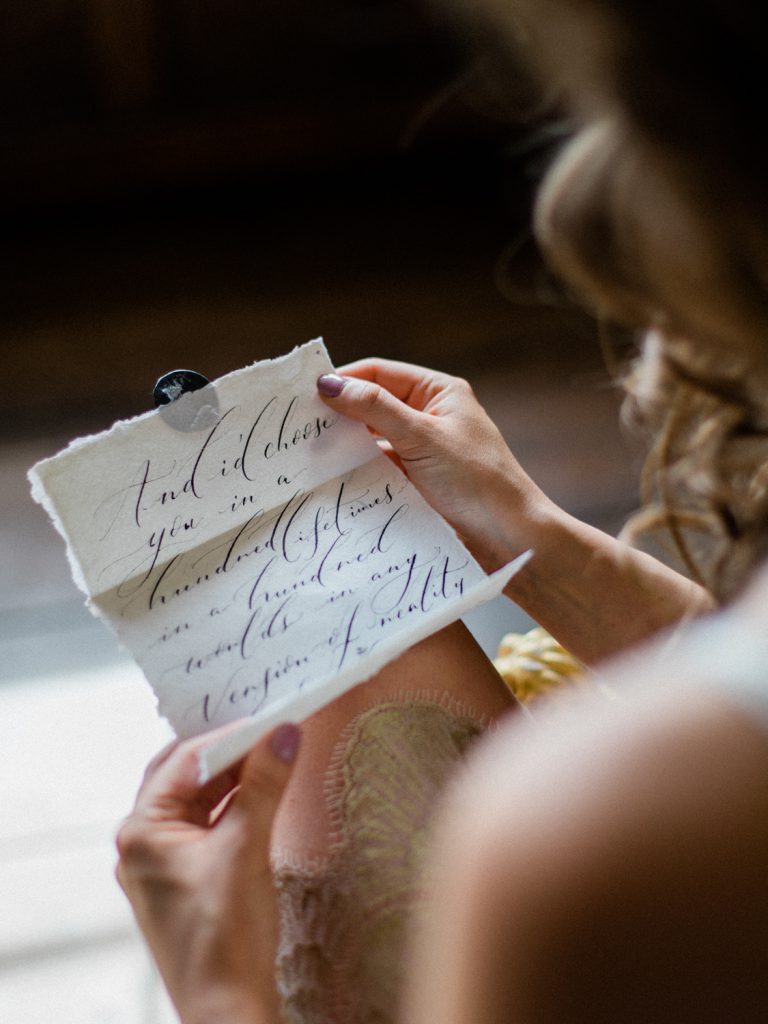 And i'd choose
you in a
hundred lifetimes
in a hundred
worlds in any
Version of reality